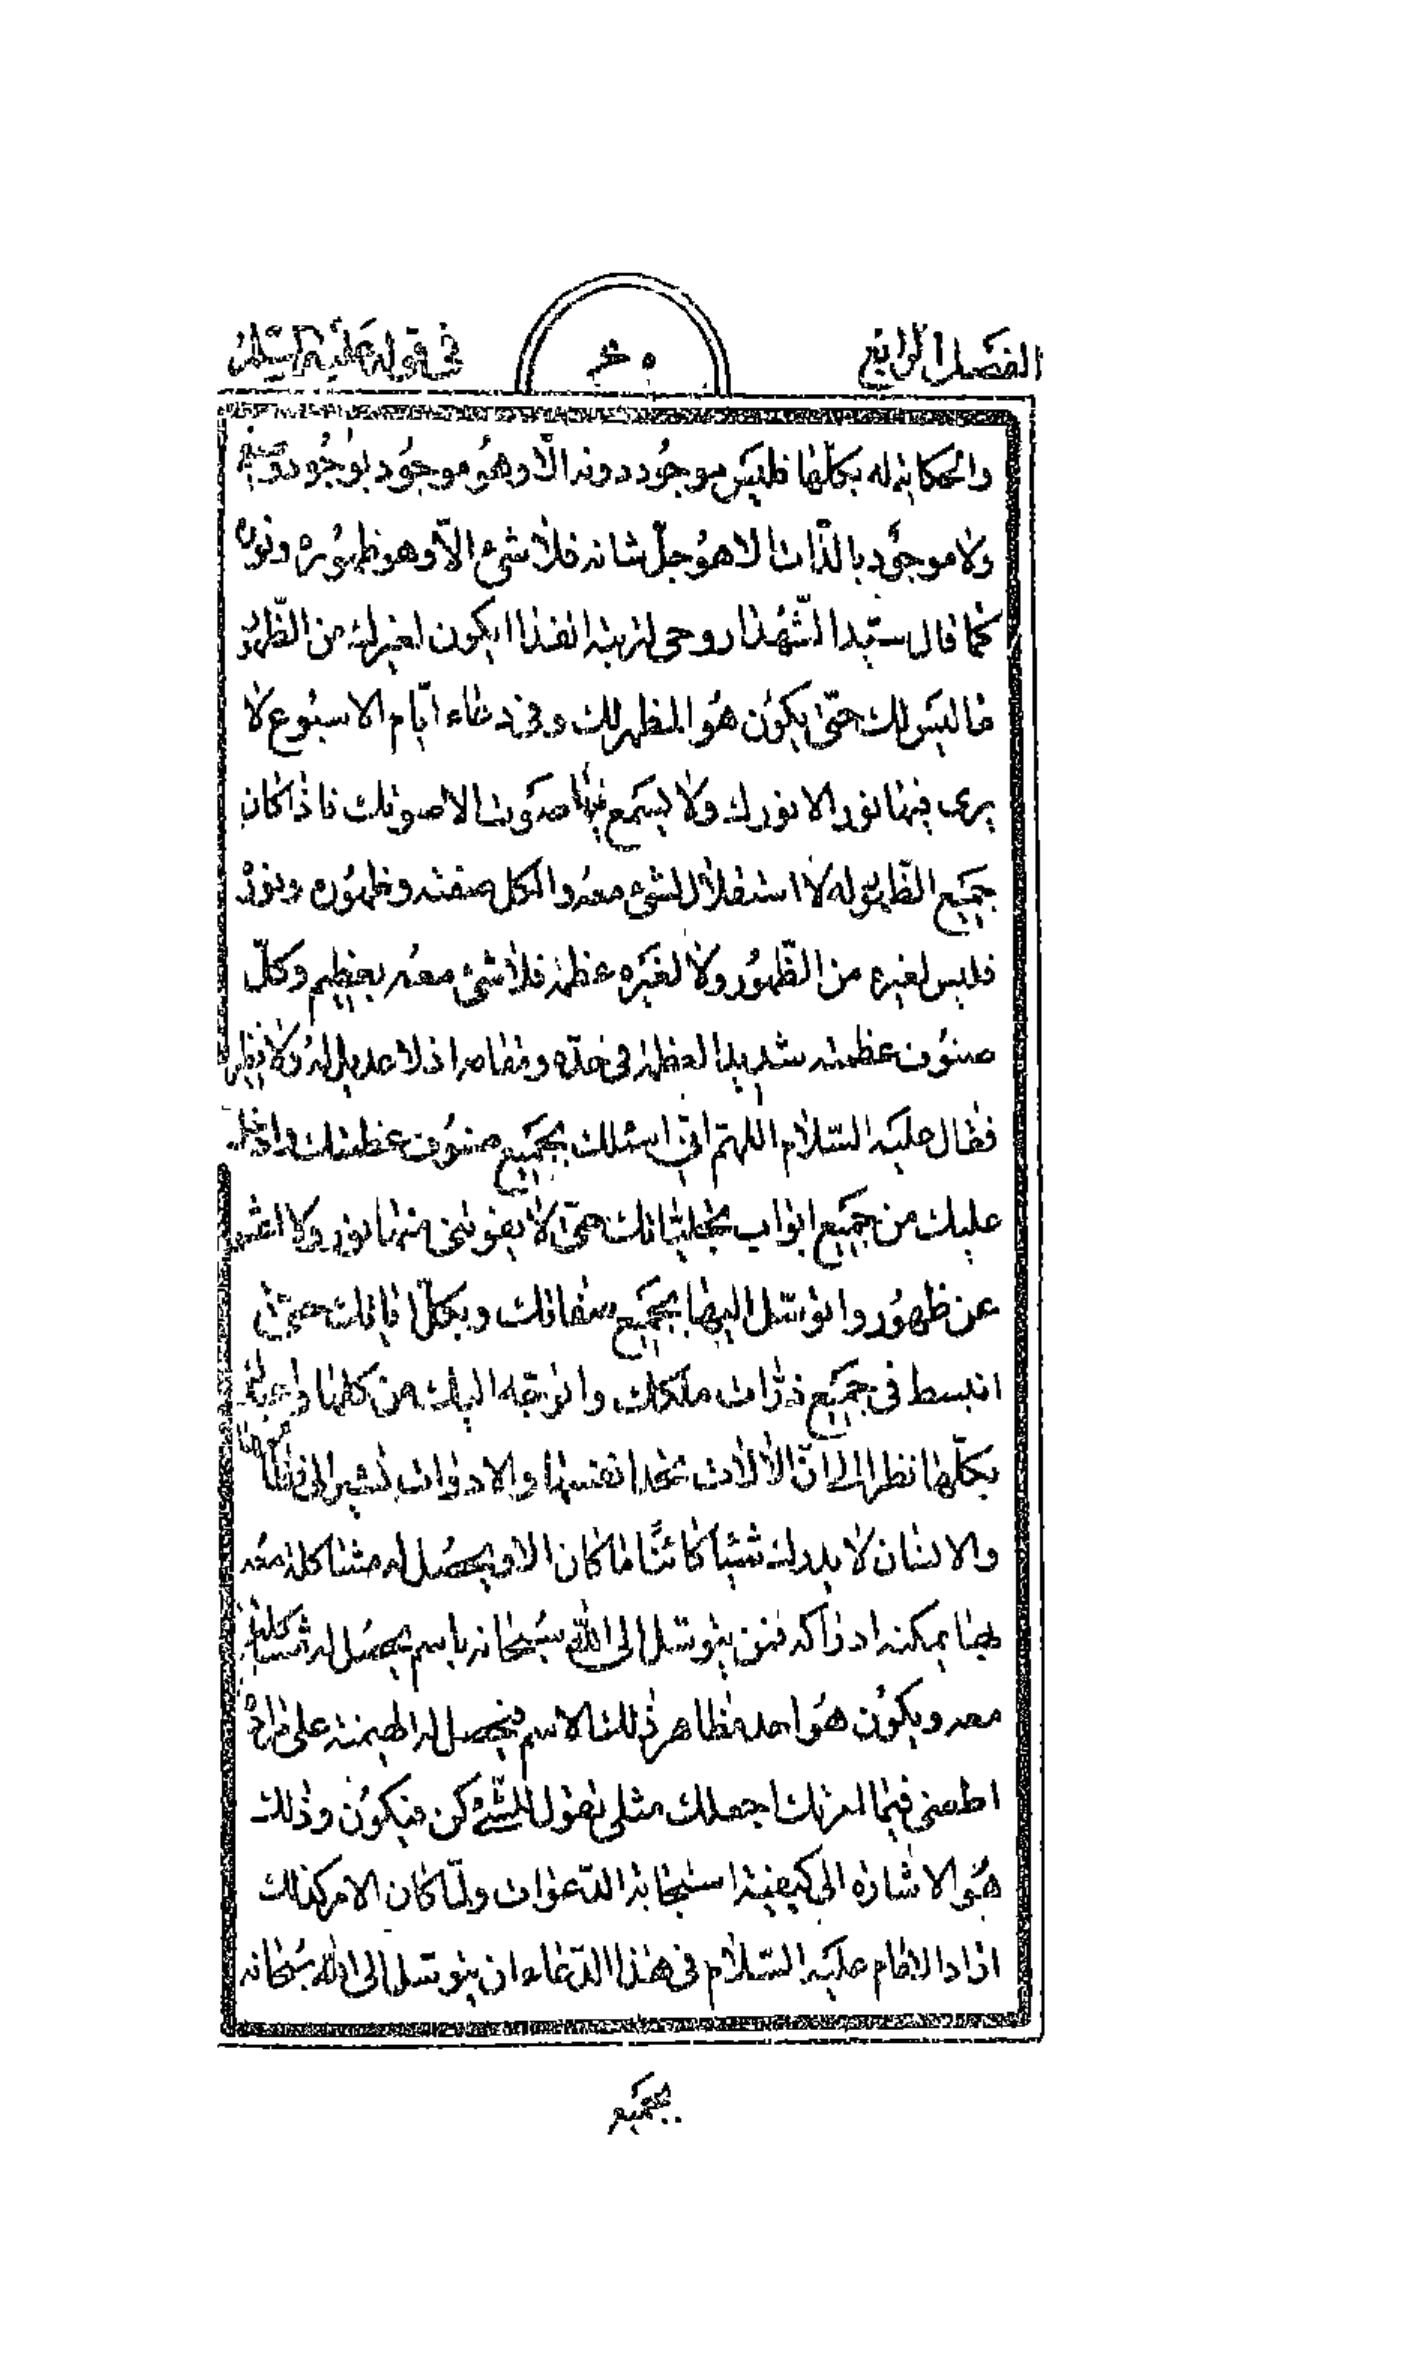 الفصل الرابع
في قوله عليه السلام
والحكاية له بكلها فليس موجود دونه الا وهو موجود بوجود
ولا موجود بالذات الا هو جل شانه فلا شئ الا وهو ظهوره ونوره
كما قال سيد الشهدا روحى لتربته الفدا ايكون لغيرك من الظهور
ما ليس لك حتى يكون هو المظهر لك وفى دعاء ايام الاسبوع لا
يرى فيها نور الا نورك ولا يسمع فيها صوت الا صوتك فاذا كان
جميع الظهور له لا استقلال لشئ معه والكل صفته وظهوره ونوره
فليس لغيره من الظهور ولا لغيره عظمة فلا شئ معه بعظيم وكل
صنوف عظمته شديد العظمة فى حده ومقامه اذ لا عديل له ولا نظير
فقال عليه السلام اللهم انى اسئلك بجميع صنوف عظمتك وادخل
عليك من جميع ابواب تجلياتك حتى لا يفوتنى منها نور ولا اعشو
عن ظهور واتوسل اليها بجميع صفاتك وبكل اياتك حتى
انبسط فى جميع ذرات ملكك واتوجه اليك من كلها
بكلها نظرا الى ان الالات تحد انفسها والادوات تشير الى نظائرها
والانسان لا يدرك شيئا كائنا ما كان الا ويحصل له مشاكلة معه
بها يمكنه ادراكه فمن يتوسل الى الله سبحانه باسم يحصل له مشاكلة
معه ويكون هو احد مظاهر ذلك الاسم فيحصل له الهيمنة على
اطعنى فيما امرتك اجعلك مثلى تقول للشئ كن فيكون وذلك
هو الاشارة الى كيفية استجابة الدعوات ولما كان الامر كذلك
اراد الامام عليه السلام فى هذا الدعاء ان يتوسل الى الله سبحانه
بجميع